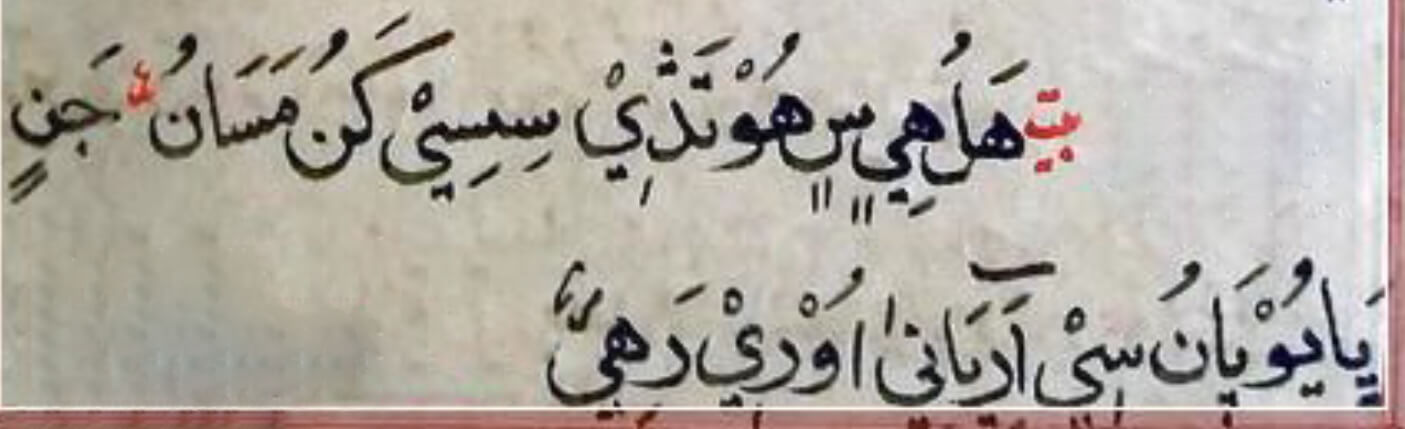 بيت هَلُ هِيٍ سٍ هُوْتَ ڎِيْ سِسِيْ كَنُ مَسَانُ ۽ جَنٍ
پَايُوْ پَانُ سِيْ آرِيَانِيٰ اُوْرِيْ رَهِيَّ